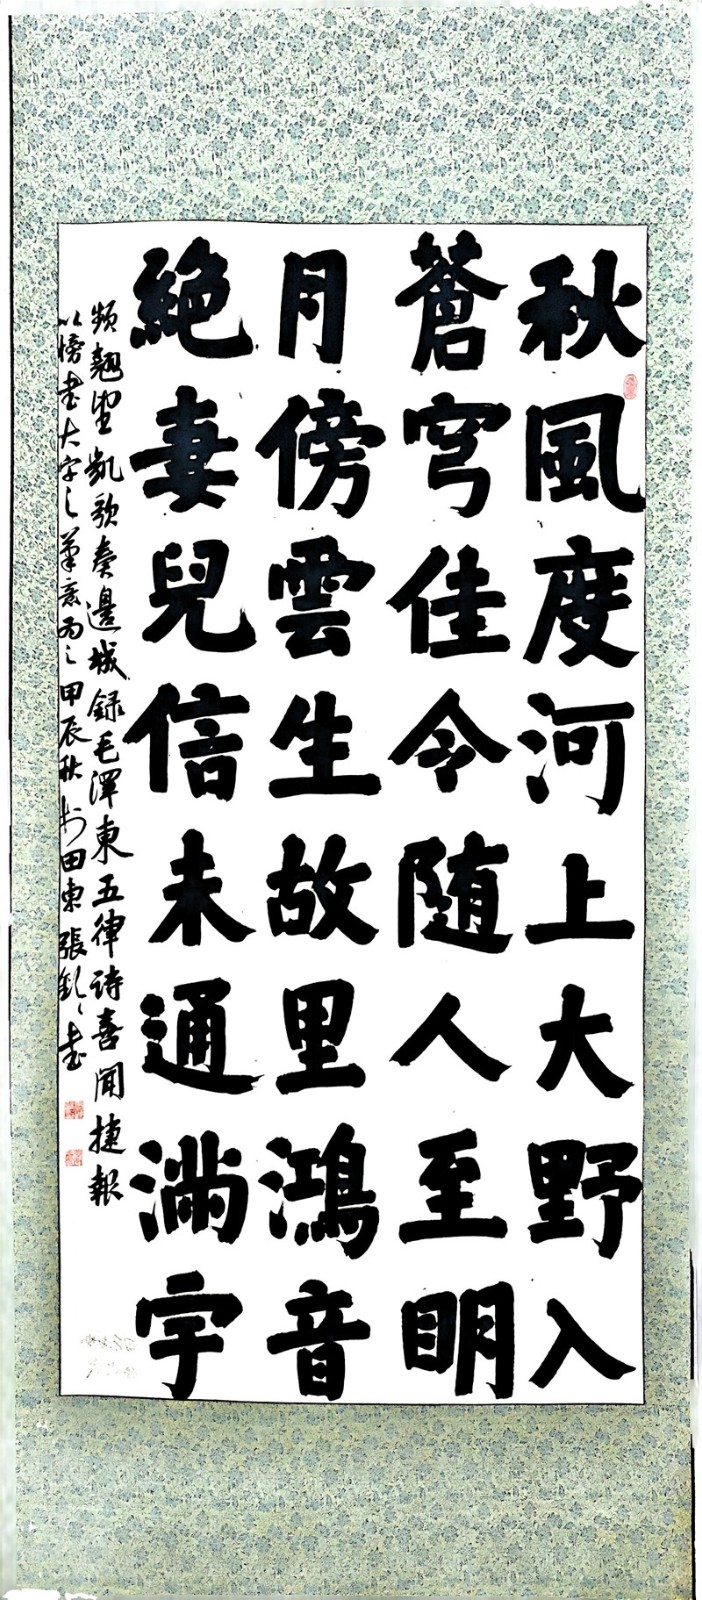 秋風度河上大野入
蒼穹佳令随人至明
月傍雲生故里鴻音
絶妻兒信未通满宇
頻翹望凱歌奏邊城録毛澤東五律詩喜聞捷報
以榜書大字之筆意為之甲辰秋於田東張欽之書